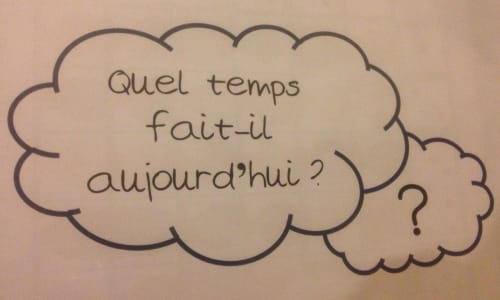 Quel temps
fait-il
aujourd'hui ?
?